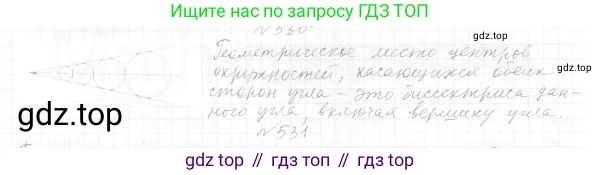 Ищите нас по запросу ГДЗ ТОП
№530
gdz.top
Геометрическое место центров
окружностей, касающихся обеих
сторон угла – это биссектриса дан-
ного угла, включая вершину угла.
gdz.top
№531
gdz.top
gdz.top // гдз.top // гдз.топ